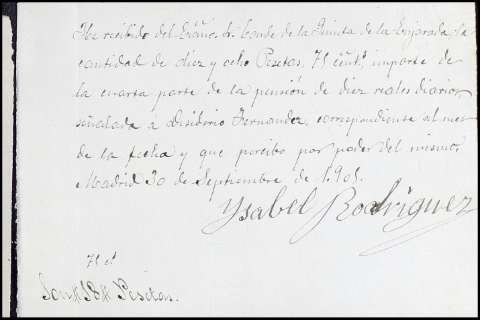 He recibido del Exmo. Sr. Conde de la Quinta de la Enjarada, la
cantidad de diez y ocho Pesetas, 75 cents. importe de
la cuarta parte de la pensión de diez reales diarios,
señalada á Desiderio Fernandez, correspondiente al mes
de la fecha y que percibo por poder del mismo.
Madrid 30 de Septiembre de 1.905.
Ysabel Rodriguez
Pesetas.